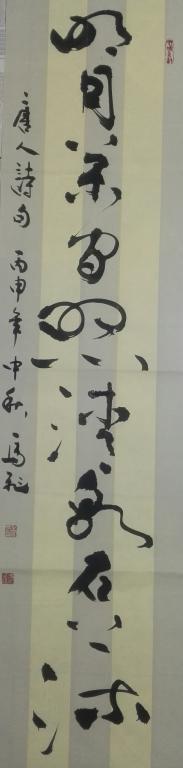 明月松间照清泉石上流
唐人詩句丙申年中秋